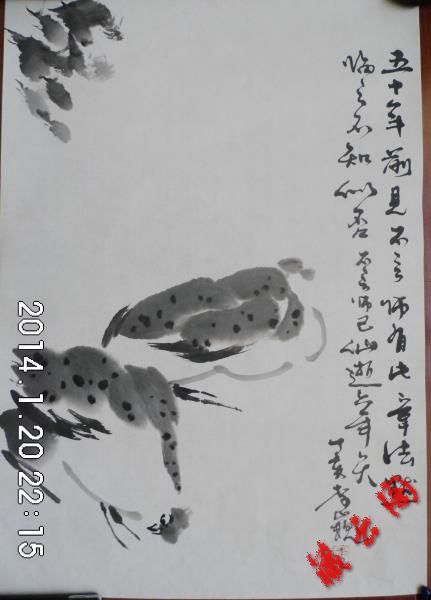 五十年前見不言師有此章法
臨之不知似否 不言師已仙逝六年矣
丁亥
2014.1.20 22:15